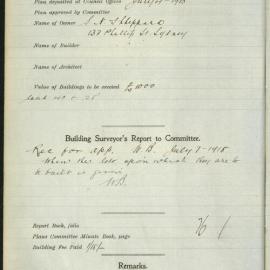 Plan deposited at Council Office
Plan approved by Committee
Name of Owner
137 Phillip St. Sydney
Name of Builder
Name of Architect
Value of Buildings to be erected £ 1000
Building Surveyor's Report to Committee.
Rec for app. W.B. July 7-1915
When the lot upon which they are to
be built is given
W.B.
Report Book, folio
Plans Committee Minute Book, page
Building Fee Paid
Remarks.